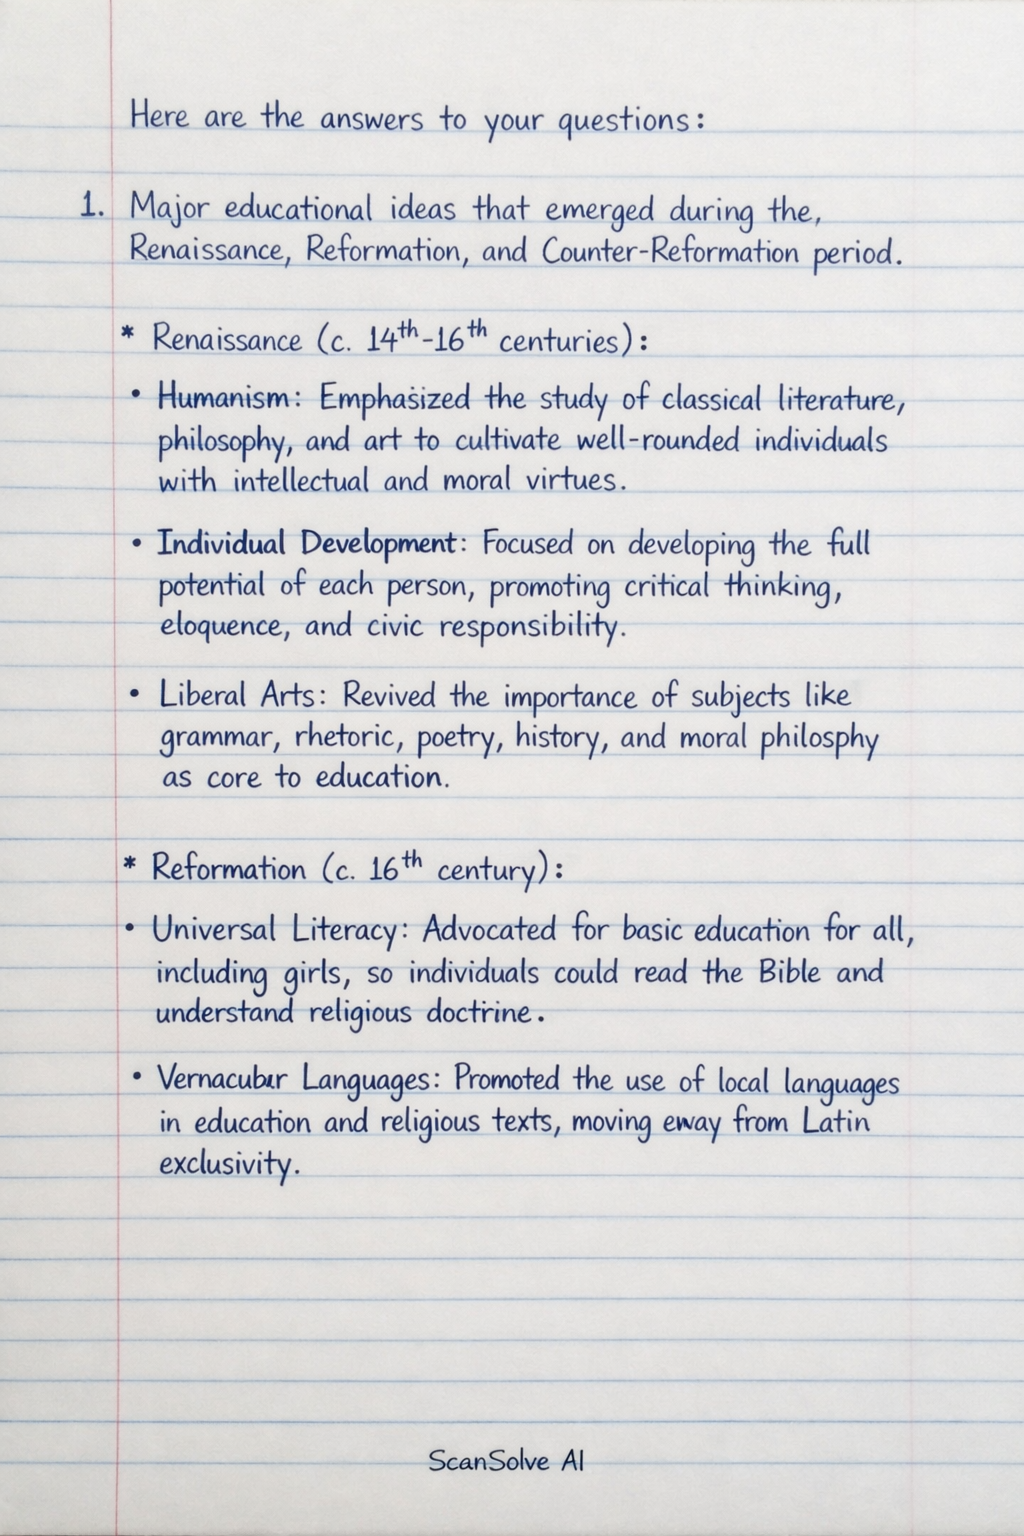 Here are the answers to your questions:
1. Major educational ideas that emerged during the,
Renaissance, Reformation, and Counter-Reformation period.
* Renaissance (c. 14th-16th centuries):
• Humanism: Emphasized the study of classical literature,
philosophy, and art to cultivate well-rounded individuals
with intellectual and moral virtues.
• Individual Development: Focused on developing the full
potential of each person, promoting critical thinking,
eloquence, and civic responsibility.
• Liberal Arts: Revived the importance of subjects like
grammar, rhetoric, poetry, history, and moral philosphy
as core to education.
* Reformation (c. 16th century):
• Universal Literacy: Advocated for basic education for all,
including girls, so individuals could read the Bible and
understand religious doctrine.
• Vernacubar Languages: Promoted the use of local languages
in education and religious texts, moving eway from Latin
exclusivity.
ScanSolve AI